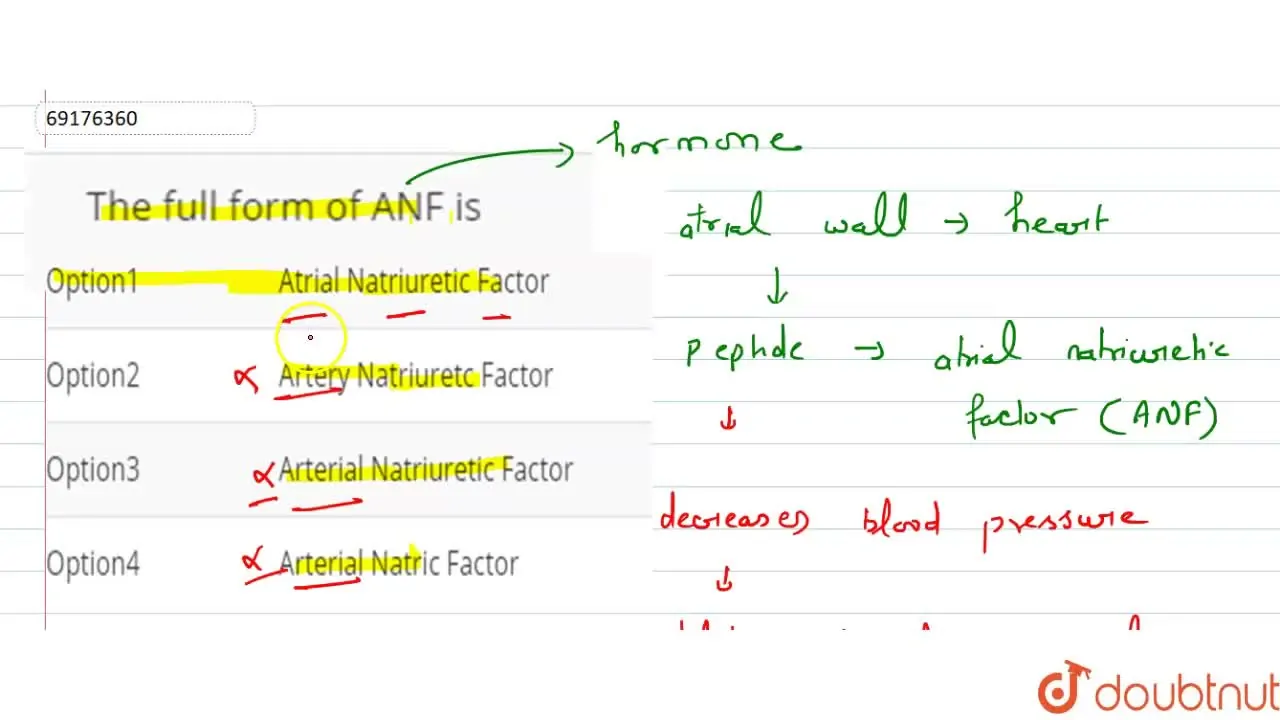 69176360
The full form of ANF is
Option1 Atrial Natriuretic Factor
Option2 Artery Natriuretc Factor
Option3 Arterial Natriuretic Factor
Option4 Arterial Natric Factor
hormone
atrial wall → heart
↓
peptide → atrial natriuretic
factor (ANF)
↓
decreases blood pressure
↓
doubtnut